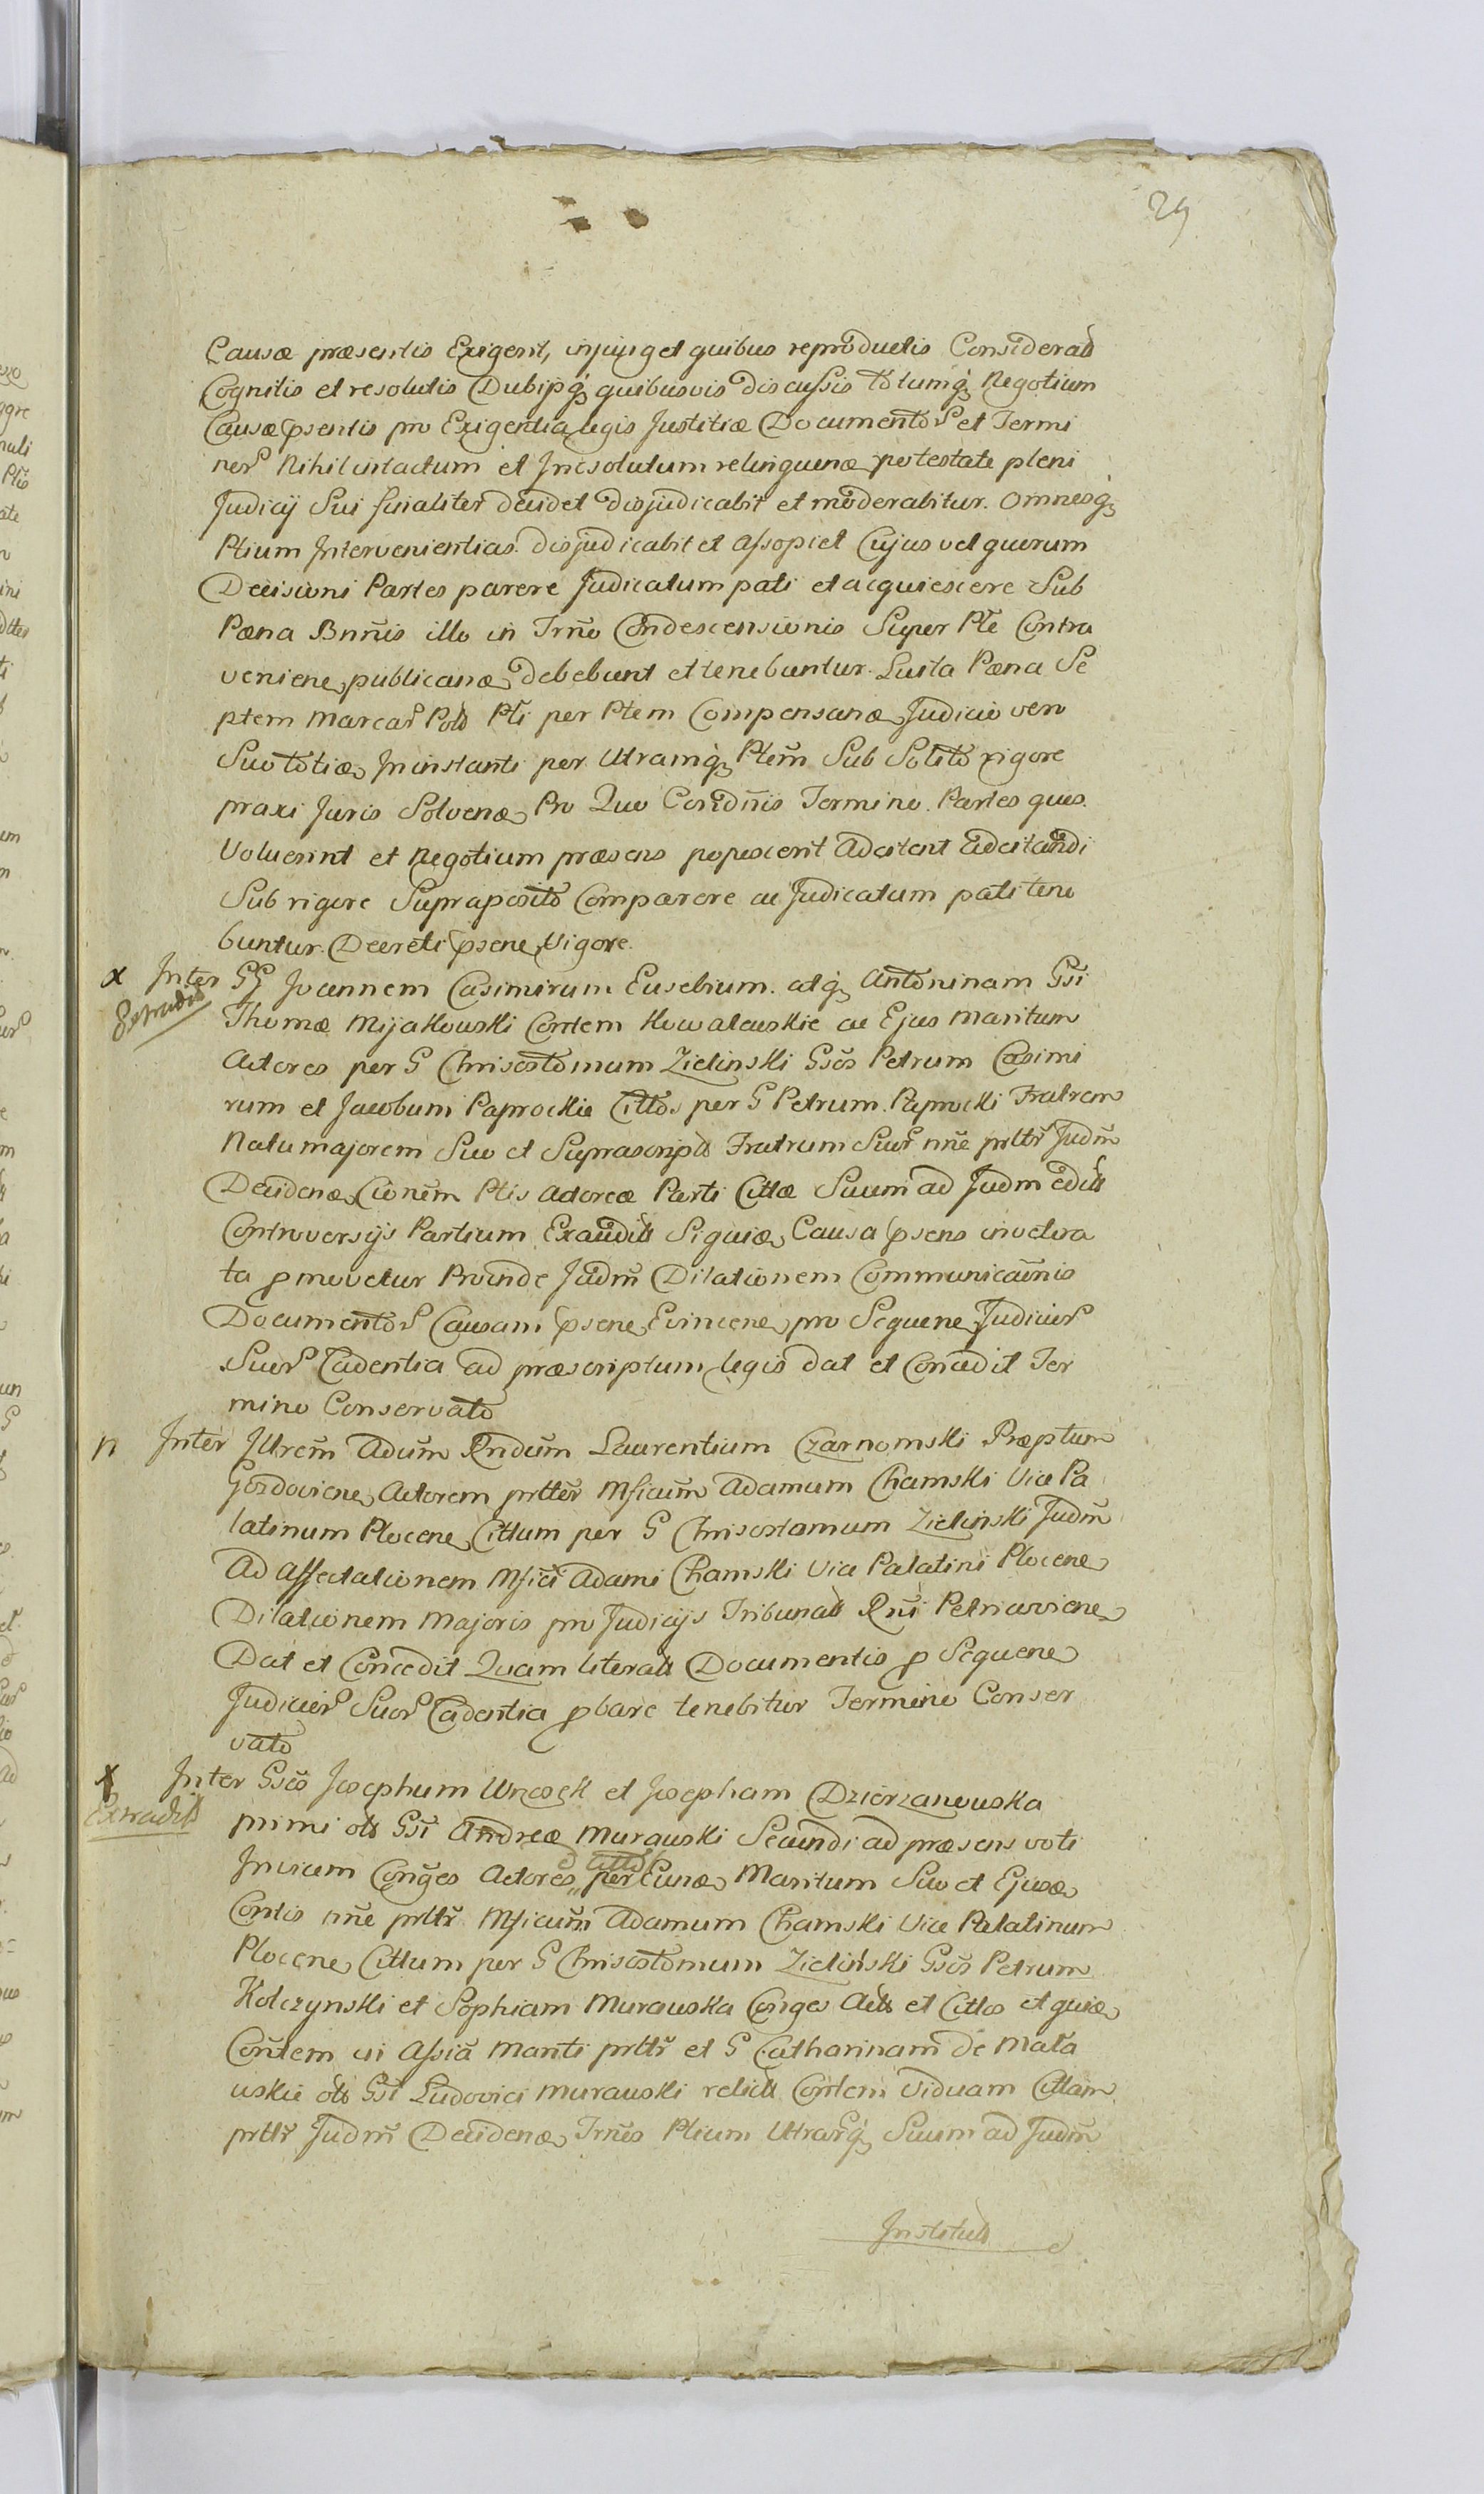 29
Causæ præsentis Exigent, injunget quibus reproductis Considerads
Cognitis et resolutis Dubijsq quibusvis discussis totumq Negotium
Causæ psentis pro Exigentia legis Justitiæ Documentor et Termi
nor Nihil intactum et Irresolutum relinquenæ potestate pleni
Judicij Sui finaliter decidet disjudicabit et moderabitur. Omnesq
Ptium Intervenientias disjudicabit et assopiet Cujus vel quorum
Decisioni Partes parere Judicatum pati et acquiescere Sub
Pæna Bnnis illo in Trno Condescensionis Super Pte Contra
veniene publicanæ debebunt et tenebuntur. Lusta Pæna Se
ptem Marcar Pols Pti per Ptem Compensanæ Judicio vero
Suo totiæ Ininstanti per Utramq Ptem Sub Solito rigore
praxi Juris Solvenæ Pro Quo Condnis Termino Partes quas
Voluerint et Negotium præsens poposcerit Adcitent Adcitandi
Sub rigore Supraposito Comparere ac Judicatum pati tene
buntur. Decreti psene Vigore.
x Inter GG Joannem Casimirum Eusebium atq Antoninam Gsi
Extradits
Thomæ Mijakowski Contem Kowalewskie ac Ejus Maritum
Actores per G Chrisostomum Zielinski Gsos Petrum Casimi
rum et Jacobum Paprockie Cittos per G Petrum Paprocki Fratrem
Natu majorem Suo et Suprascripts Fratrum Suor nne prttr Judm
Decidenæ Cionem Ptis Actoreæ Parti Cittæ Suum ad Judm edits
Controversijs Partium Exaudits Siquiæ Causa psens invetera
ta pmovetur Proinde Judm Dilationem Communicaonis
Documentor Causam psene Evincene pro Sequene Judicior
Suor Cadentia ad præscriptum legis dat et Concedit Ter
mino Conservato
n Inter Illrem Adum Rndum Laurentium Czarnomski Præptum
Gozdoviene Actorem prtter Mficum Adamum Chamski Vice Pa
latinum Plocene Cittum per G Chrisostomum Zielinski Judm
Ad Affectationem Mfici Adami Chamski Vice Palatini Plocene
Dilationem Majoris pro Judicijs Tribunals Rni Petricoviene
Dat et Concedit Quam literats Documentis p Sequene
Judicior Suor Cadentia pbare tenebitur Termino Conser
vato
x Inter Gsos Josephum et Josepham Dzierzanowska
Extradits
primi ots Gsi Andreæ Murawski Secundi ad præsens voti
Invicem Conges Actores per Eunæ Maritum Suo et Ejusæ
Contis nne prttr Mficum Adamum Chamski Vice Palatinum
Plocene Cittum per G Chrisostomum Zieliński Gsos Petrum
Kolczynski et Sophiam Murawska Conges Acts et Cittos et quiæ
Contem in Assia Mariti prttr et G Catharinam de Mała
uskie ots Gsi Ludovici Murawski relicts Contem Viduam Cittam
prttr Judm Decidenæ Trnos Ptium Utrarq Suum ad Judm
Institutis